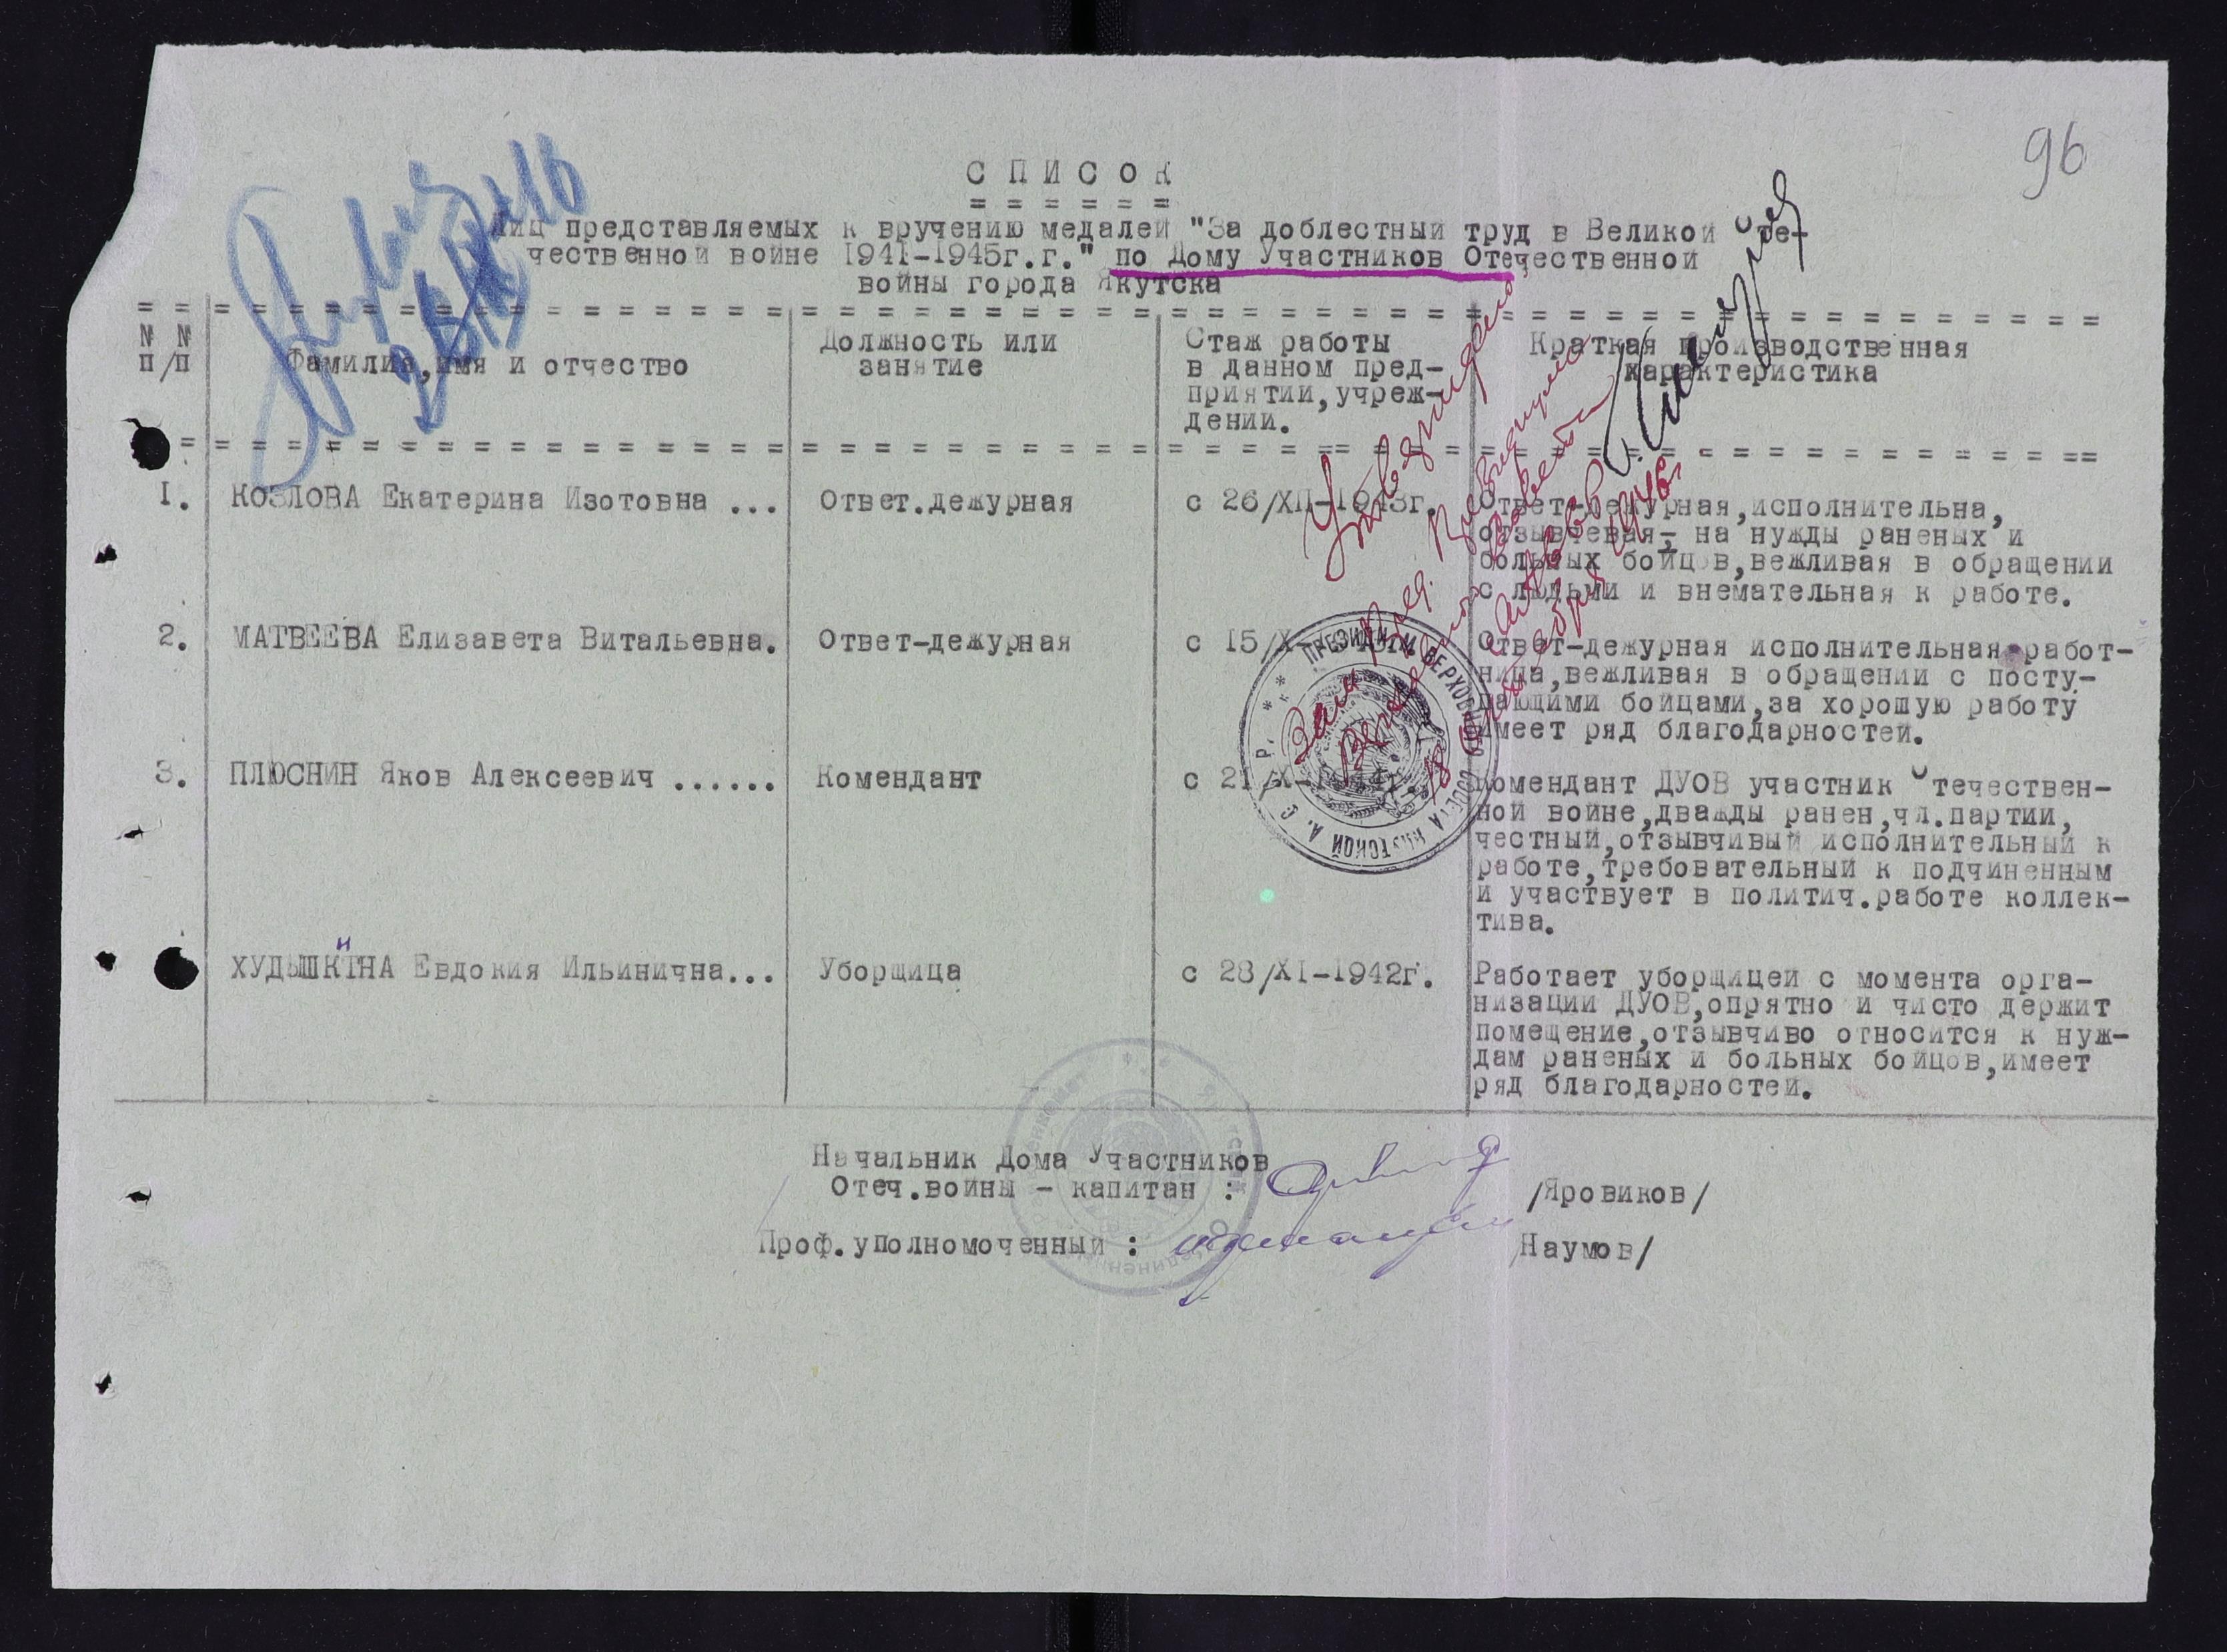 96
СПИСОК
лиц представляемых к вручению медалей "За доблестный труд в Великой Оте-
чественной войне 1941-1945г.г." по Дому Участников Отечественной
войны города Якутска
№ № п/п
Фамилия, имя и отчество
Должность или занятие
Стаж работы
в данном пред-
приятии, учреж-
дении.
Краткая производственная
характеристика
1. КОЗЛОВА Екатерина Изотовна ... Ответ.дежурная с 26/XII-1943г.
Ответ-дежурная,исполнительна,
отзывчевая- на нужды раненых и
больных бойцов,вежливая в обращении
с людьми и внемательная к работе.
2. МАТВЕЕВА Елизавета Витальевна. Ответ-дежурная с 15/X-
Ответ-дежурная исполнительная работ-
ница,вежливая в обращении с посту-
пающими бойцами,за хорошую работу
имеет ряд благодарностей.
3. ПЛЮСНИН Яков Алексеевич ...... Комендант с 21/X-
Комендант ДУОВ участник Отечествен-
ной войне,дважды ранен,чл.партии,
честный,отзывчивый исполнительный к
работе,требовательный к подчиненным
и участвует в политич.работе коллек-
тива.
ХУДЫШКИНА Евдокия Ильинична... Уборщица с 28/XI-1942г.
Работает уборщицей с момента орга-
низации ДУОВ,опрятно и чисто держит
помещение,отзывчиво относится к нуж-
дам раненых и больных бойцов,имеет
ряд благодарностей.
Утверждено
Зам. Пред. Президиума
Верховного Совета
ПРЕЗИДИУМ ВЕРХОВНОГО СОВЕТА ЯКУТСКОЙ А. С. С. Р.
Начальник Дома Участников
Отеч.войны - капитан : /Яровиков/
Проф.уполномоченный : Наумов/